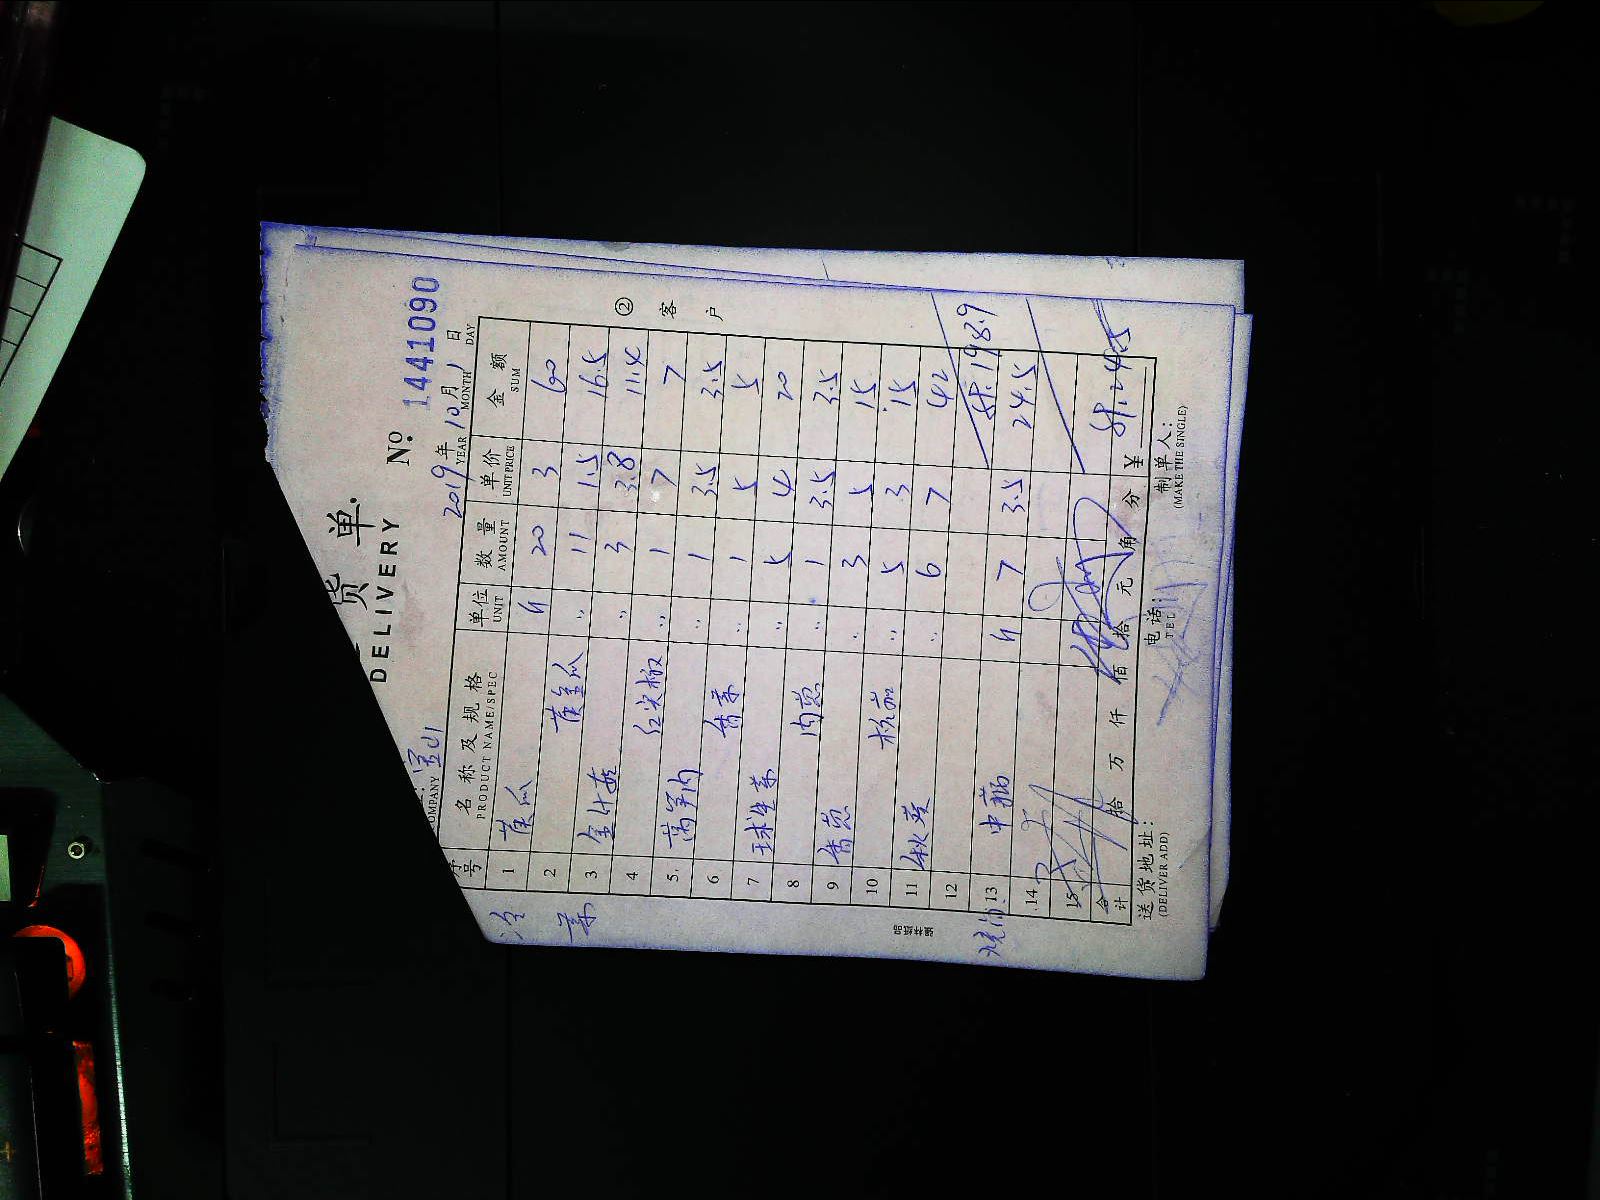 货 单.
DELIVERY No. 1441090
2019年10月1日
YEAR MONTH DAY
COMPANY 宝山
序号 名称及规格 单位 数量 单价 金额
PRODUCT NAME/SPEC UNIT AMOUNT UNIT PRICE SUM
1 黄瓜 斤 20 3 60
2 黄金瓜 〃 11 1.5 16.5
3 金针菇 〃 3 3.8 11.4
4 红尖椒 〃 1 7 7
5 莴笋肉 〃 1 3.5 3.5
6 香菜 〃 1 5 5
7 球生菜 〃 5 4 20
8 肉葱 〃 1 3.5 3.5
9 香葱 〃 3 5 15
10 杭茄 〃 5 3 15
11 秋葵 〃 6 7 42
12 198.9
13 斤 7 3.5 24.5
14
15
合计 拾 万 仟 佰 拾 元 角 分 ¥ 24.5
送货地址: 电话: 制单人:
(DELIVER ADD) TEL (MAKE THE SINGLE)
②客户
冷菜